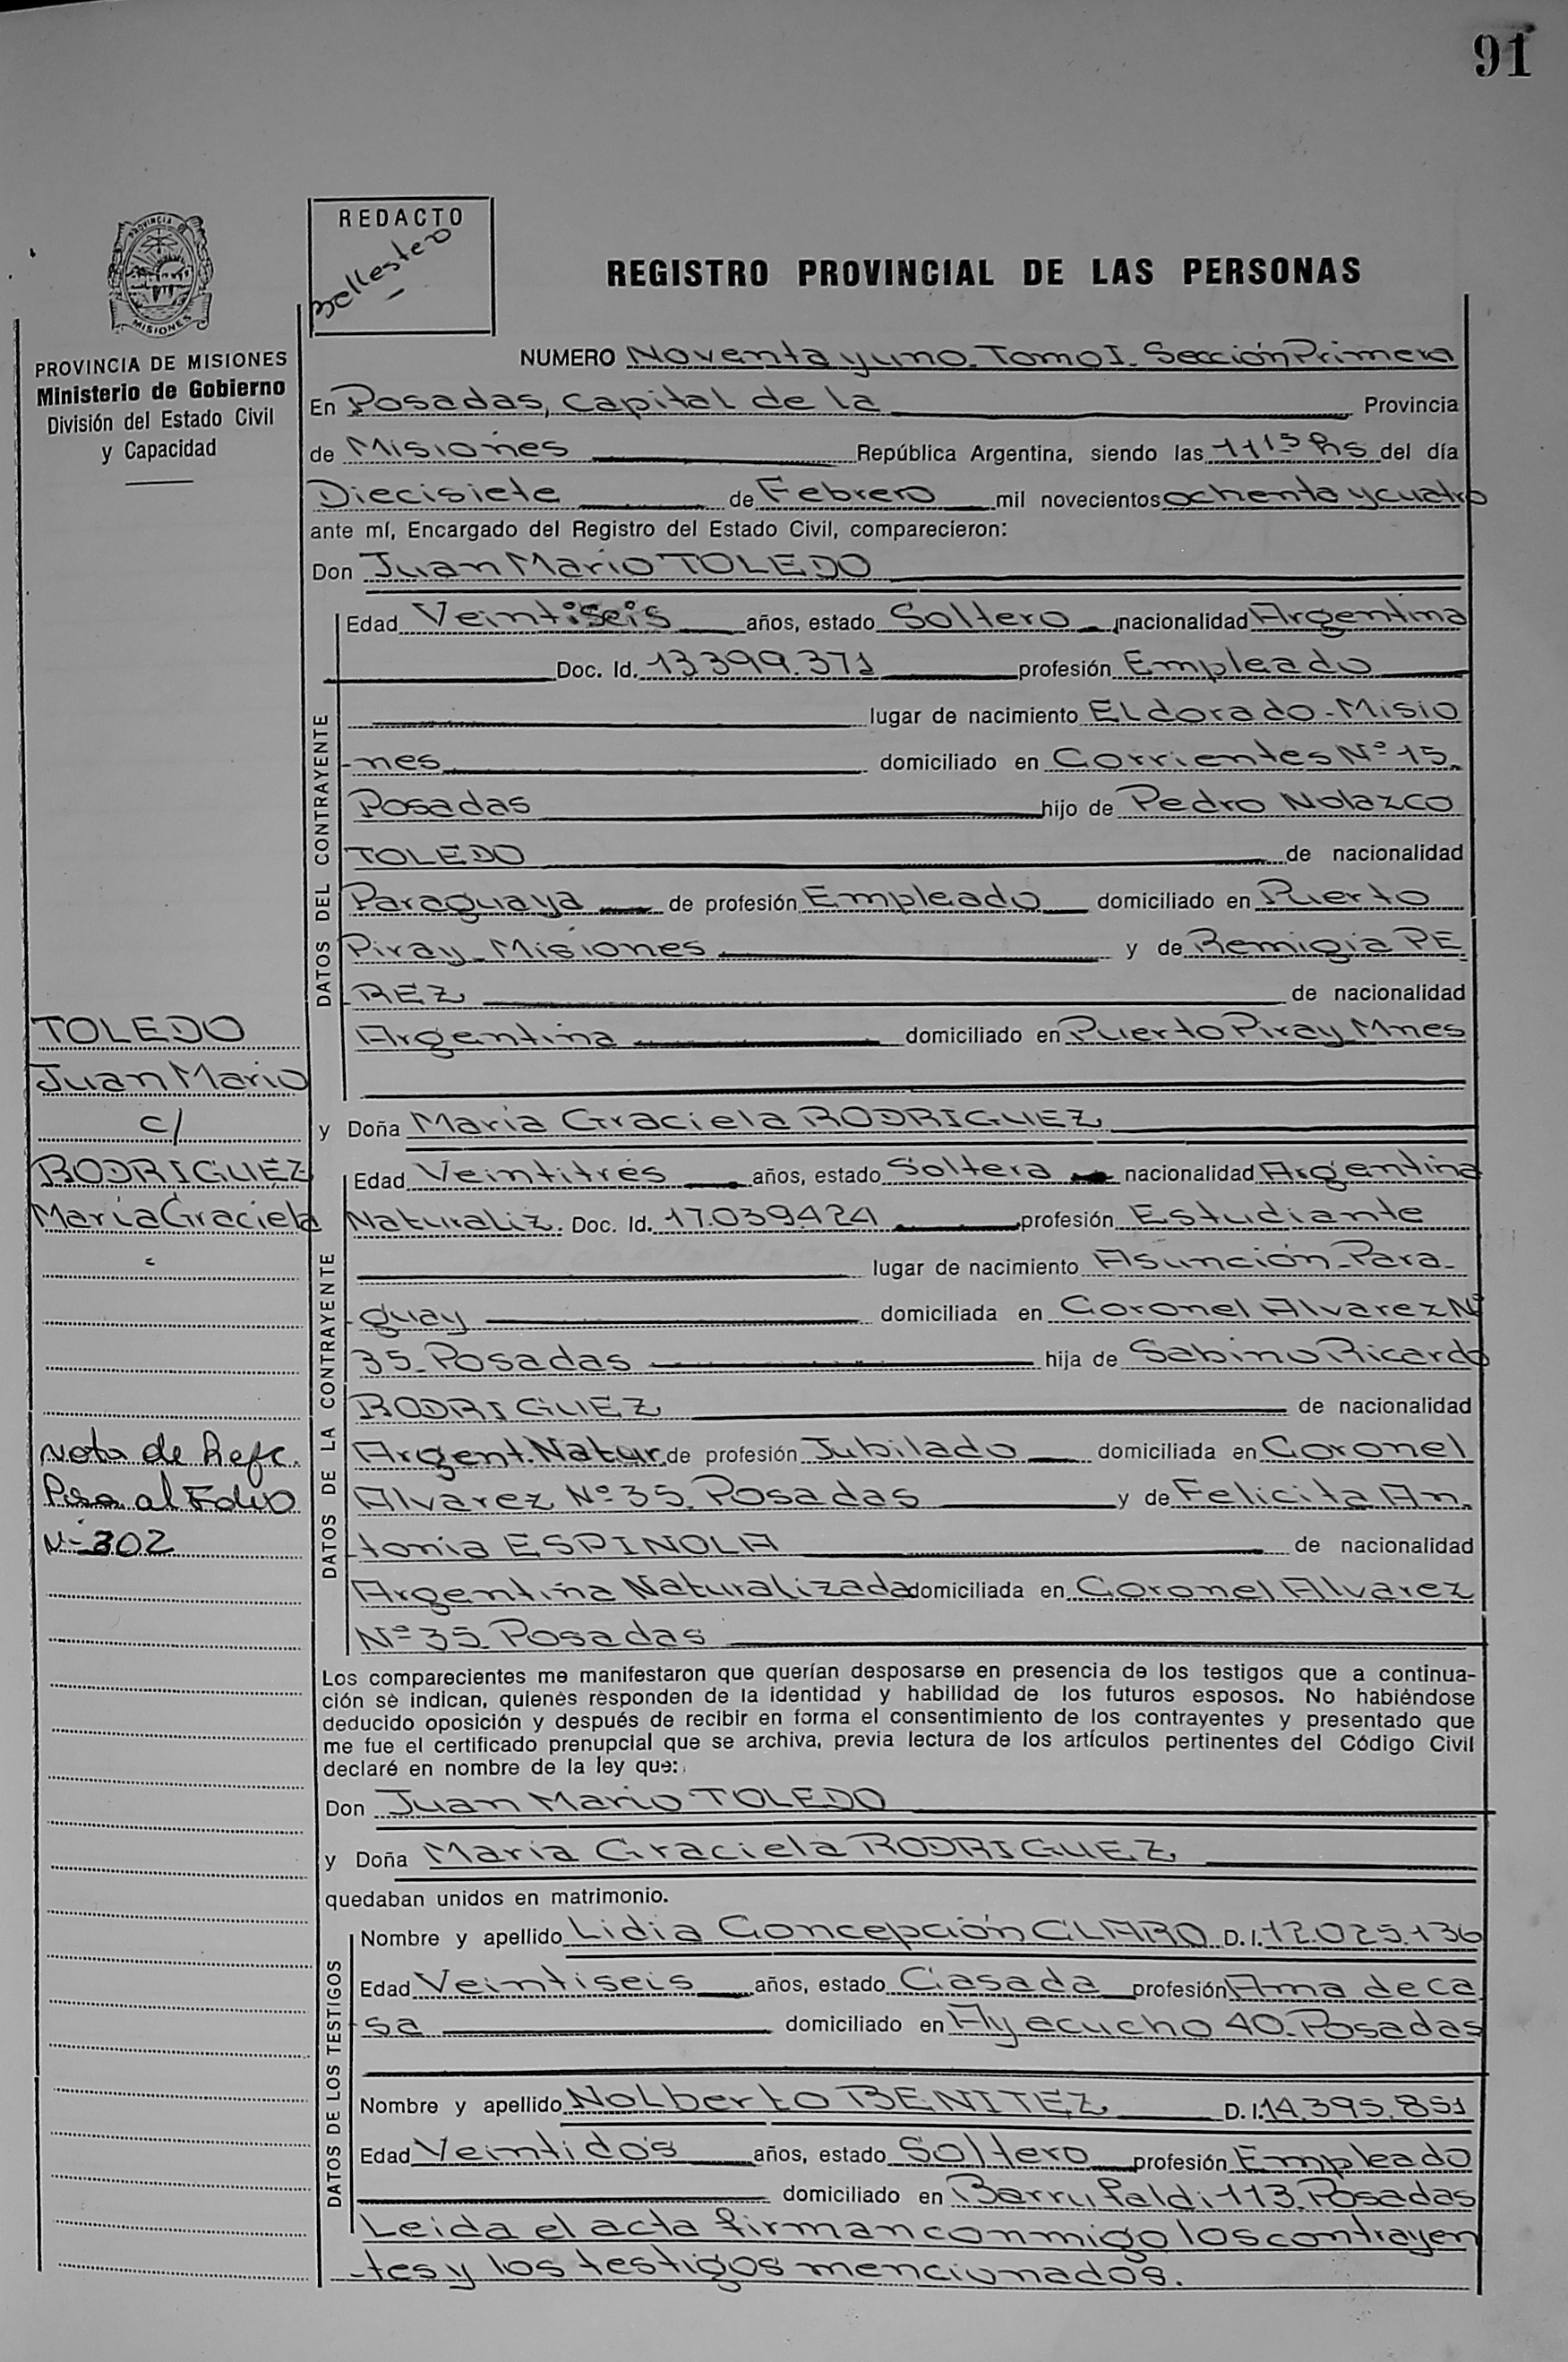 91
REDACTO
Bellestero
REGISTRO PROVINCIAL DE LAS PERSONAS
PROVINCIA DE MISIONES
Ministerio de Gobierno
División del Estado Civil
y Capacidad
NUMERO Noventa y uno. Tomo I. Sección Primera
En Posadas, Capital de la Provincia
de Misiones República Argentina, siendo las 11 15 hs del día
Diecisiete de Febrero mil novecientos ochenta y cuatro
ante mí, Encargado del Registro del Estado Civil, comparecieron:
Don Juan Mario TOLEDO
DATOS DEL CONTRAYENTE
Edad Veintiseis años, estado Soltero nacionalidad Argentina
Doc. Id. 13.399.371 profesión Empleado
lugar de nacimiento ELdorado-Misio
nes domiciliado en Corrientes Nº 15.
Posadas hijo de Pedro Nolazco
TOLEDO de nacionalidad
Paraguaya de profesión Empleado domiciliado en Puerto
Piray-Misiones y de Remigia PE
REZ de nacionalidad
Argentina domiciliado en Puerto Piray Mnes
y Doña María Graciela RODRIGUEZ
DATOS DE LA CONTRAYENTE
Edad Veintitrés años, estado Soltera nacionalidad Argentina
Naturaliz. Doc. Id. 17.039.424 profesión Estudiante
lugar de nacimiento Asunción-Para-
guay domiciliada en Coronel Alvarez Nº
35-Posadas hija de Sabino Ricardo
RODRIGUEZ de nacionalidad
Argent. Natur de profesión Jubilado domiciliada en Coronel
Alvarez Nº 35. Posadas y de Felicita An.
tonia ESPINOLA de nacionalidad
Argentina Naturalizada domiciliada en Coronel Alvarez
Nº 35 Posadas
TOLEDO
Juan Mario
c/
RODRIGUEZ
María Graciela
Nota de Refe.
Pasa al Folio
Nº 302
Los comparecientes me manifestaron que querían desposarse en presencia de los testigos que a continua-
ción se indican, quienes responden de la identidad y habilidad de los futuros esposos. No habiéndose
deducido oposición y después de recibir en forma el consentimiento de los contrayentes y presentado que
me fue el certificado prenupcial que se archiva, previa lectura de los artículos pertinentes del Código Civil
declaré en nombre de la ley que:
Don Juan Mario TOLEDO
y Doña María Graciela RODRIGUEZ
quedaban unidos en matrimonio.
DATOS DE LOS TESTIGOS
Nombre y apellido Lidia Concepción CLARO D. I. 12.025.136
Edad Veintiseis años, estado Casada profesión Ama de ca
sa domiciliado en Ayacucho 40. Posadas
Nombre y apellido Nolberto BENITEZ D. I. 14.395.851
Edad Veintidós años, estado Soltero profesión Empleado
domiciliado en Barrufaldi 113. Posadas
Leida el acta firman conmigo los contrayen
tes y los testigos mencionados.